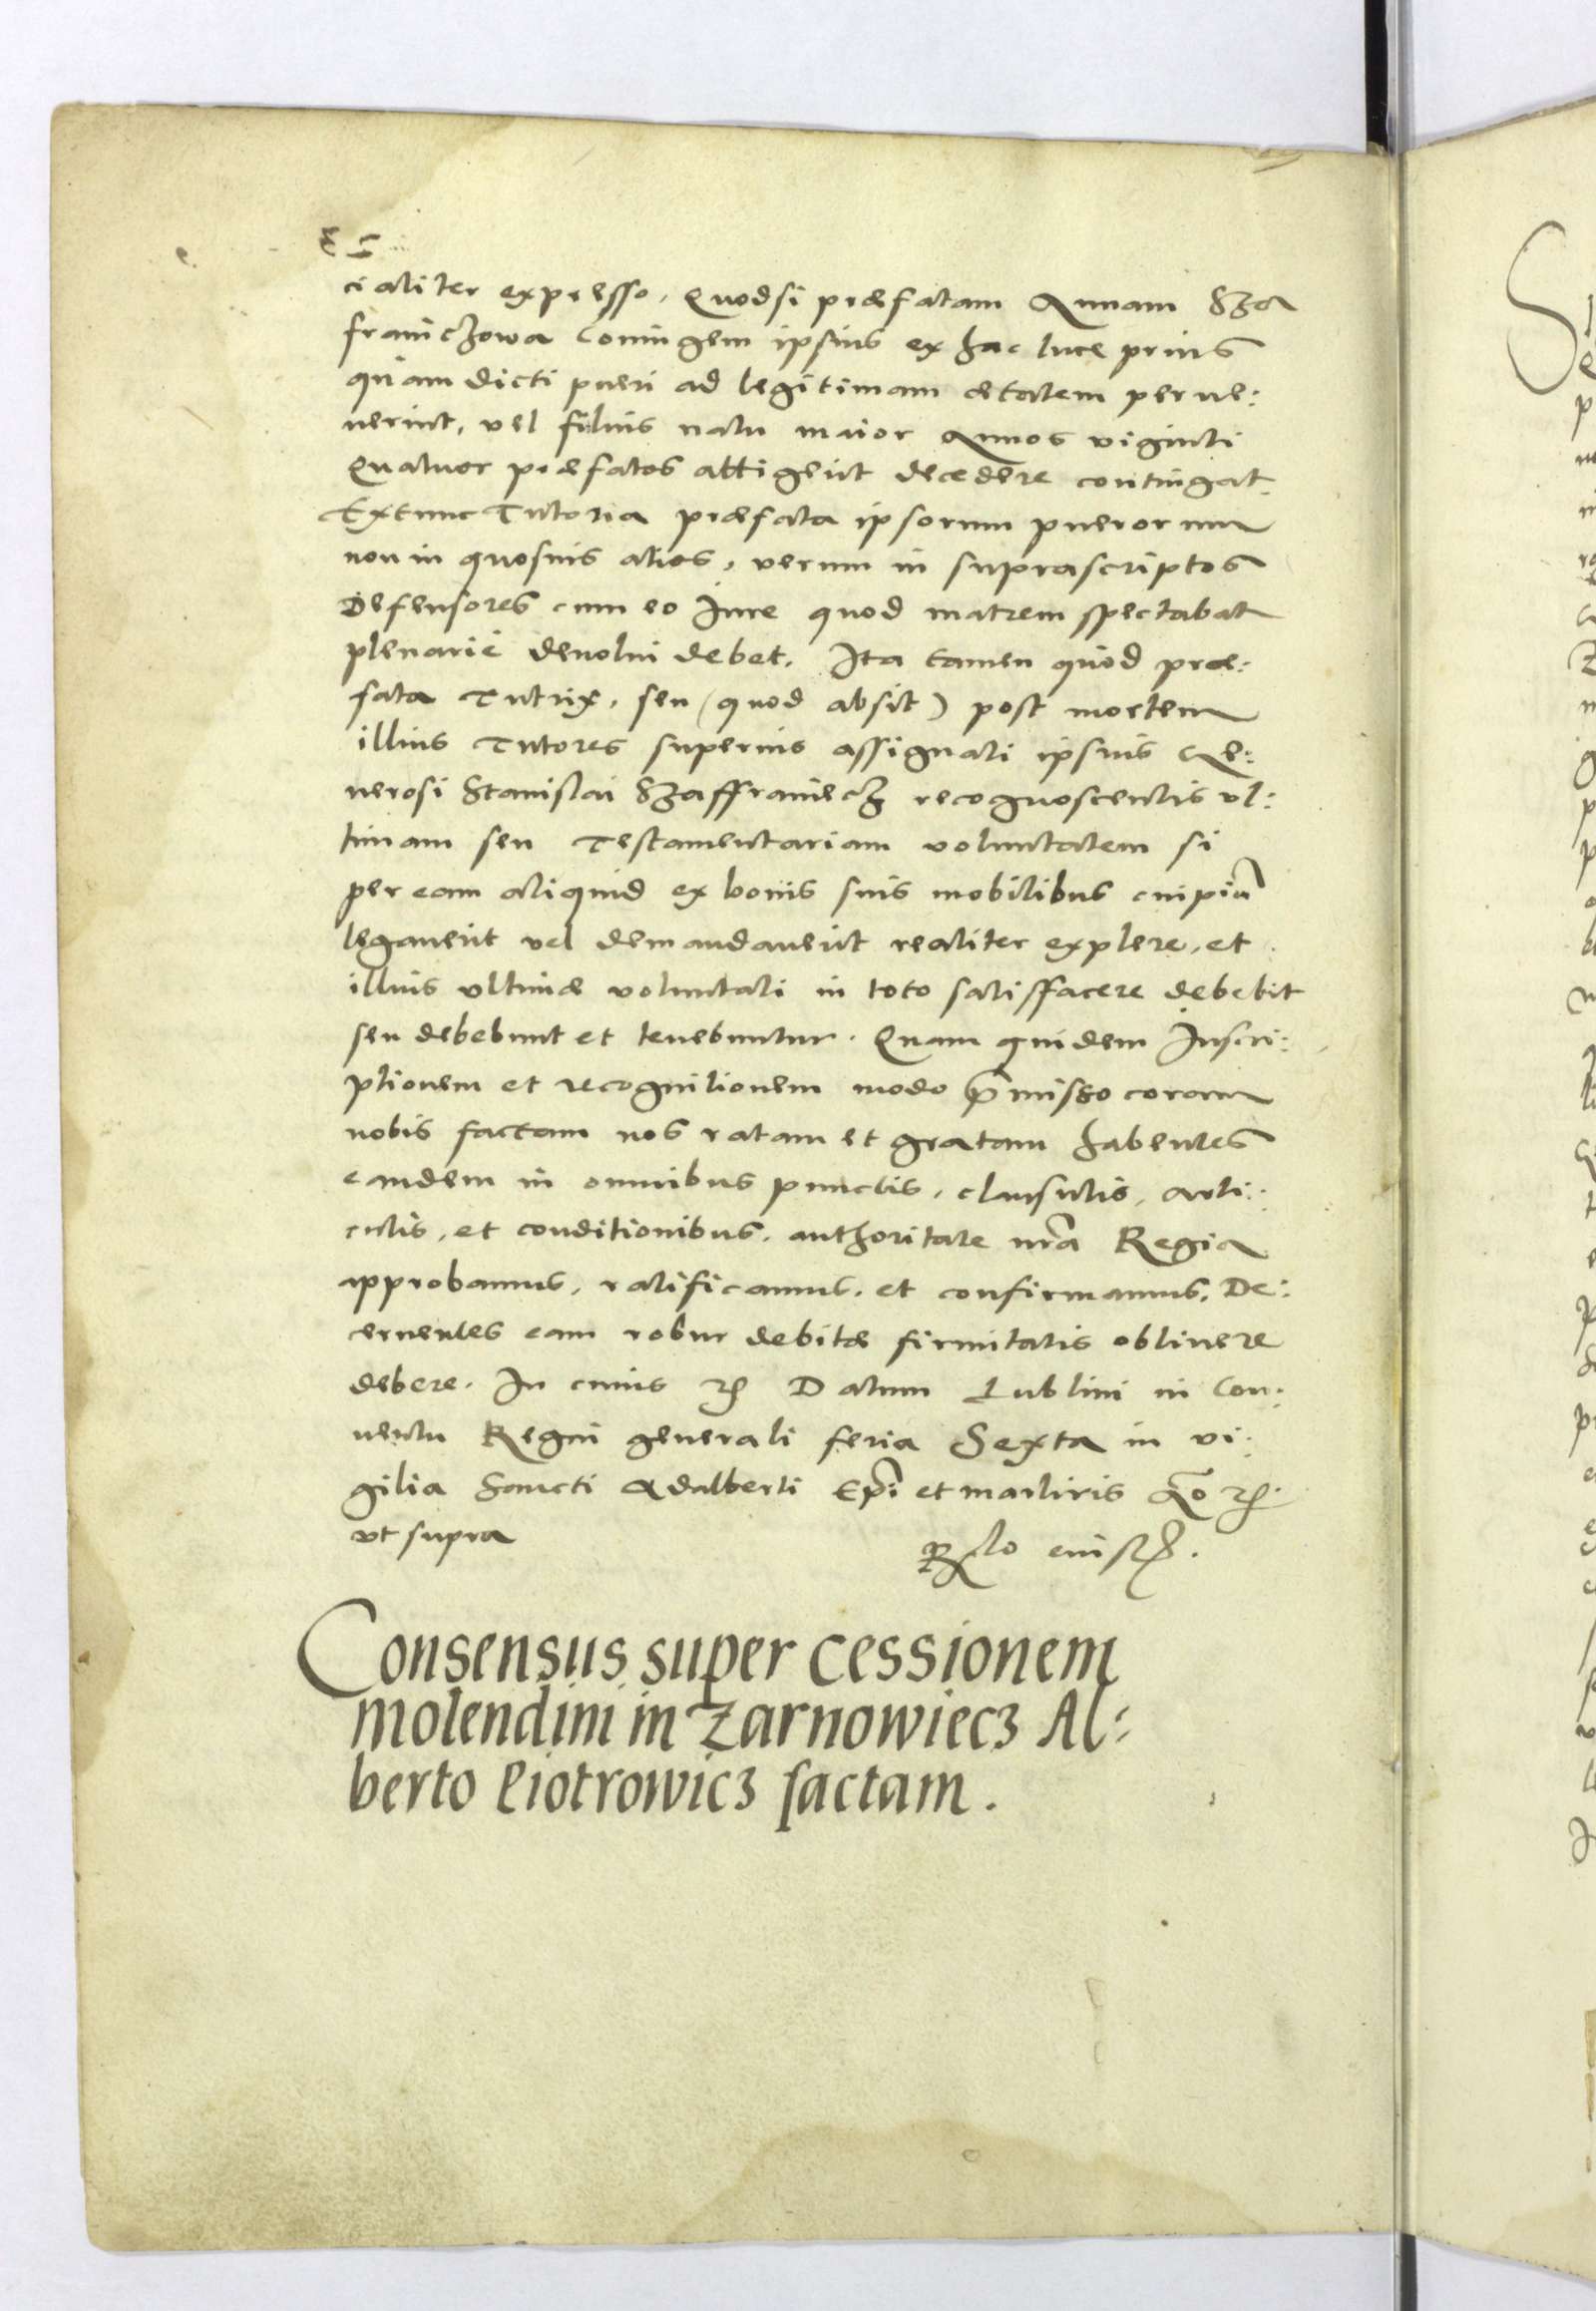 cialiter expresso, Quodsi præfatam Annam Sza
franiczowa Coniugem ipsius ex hac luce prius
quam dicti pueri ad legitimam ætatem perue:
nerint, vel filius natu maior Annos viginti
Quatuor præfatos attigerit decedere contingat.
Extunc Tutoria præfata ipsorum puerorum
non in quosuis alios, verum in suprascriptos
Defensores cum eo Iure quod matrem spectabat
plenarie deuolui debet. Ita tamen quod præ:
fata Tutrix, seu (quod absit) post mortem
illius Tutores superius assignati ipsius Ge:
nerosi Stanislai Szaffraniecz recognoscentis vl:
timam seu Testamentariam voluntatem si
per eam aliquid ex bonis suis mobilibus cuipia
legauerit vel demandauerit realiter explere, et
illius vltimæ voluntati in toto satisffacere debebit
seu debebunt et tenebuntur. Quam quidem Inscri:
ptionem et recognitionem modo pmisso coram
nobis factam nos ratam et gratam habentes
eandem in omnibus punctis, clausulis, arti:
culis, et conditionibus, authoritate nra Regia
approbamus, ratificamus, et confirmamus, De:
cernentes eam robur debitæ firmitatis obtinere
debere. In cuius rei Datum Lublini in Con:
uentu Regni generali feria Sexta in vi:
gilia Sancti Adalberti Epi et martiris
vt supra
Rlo eiusd.
Consensus super cessionem
molendini in Zarnowiecz Al:
berto Piotrowicz factam.